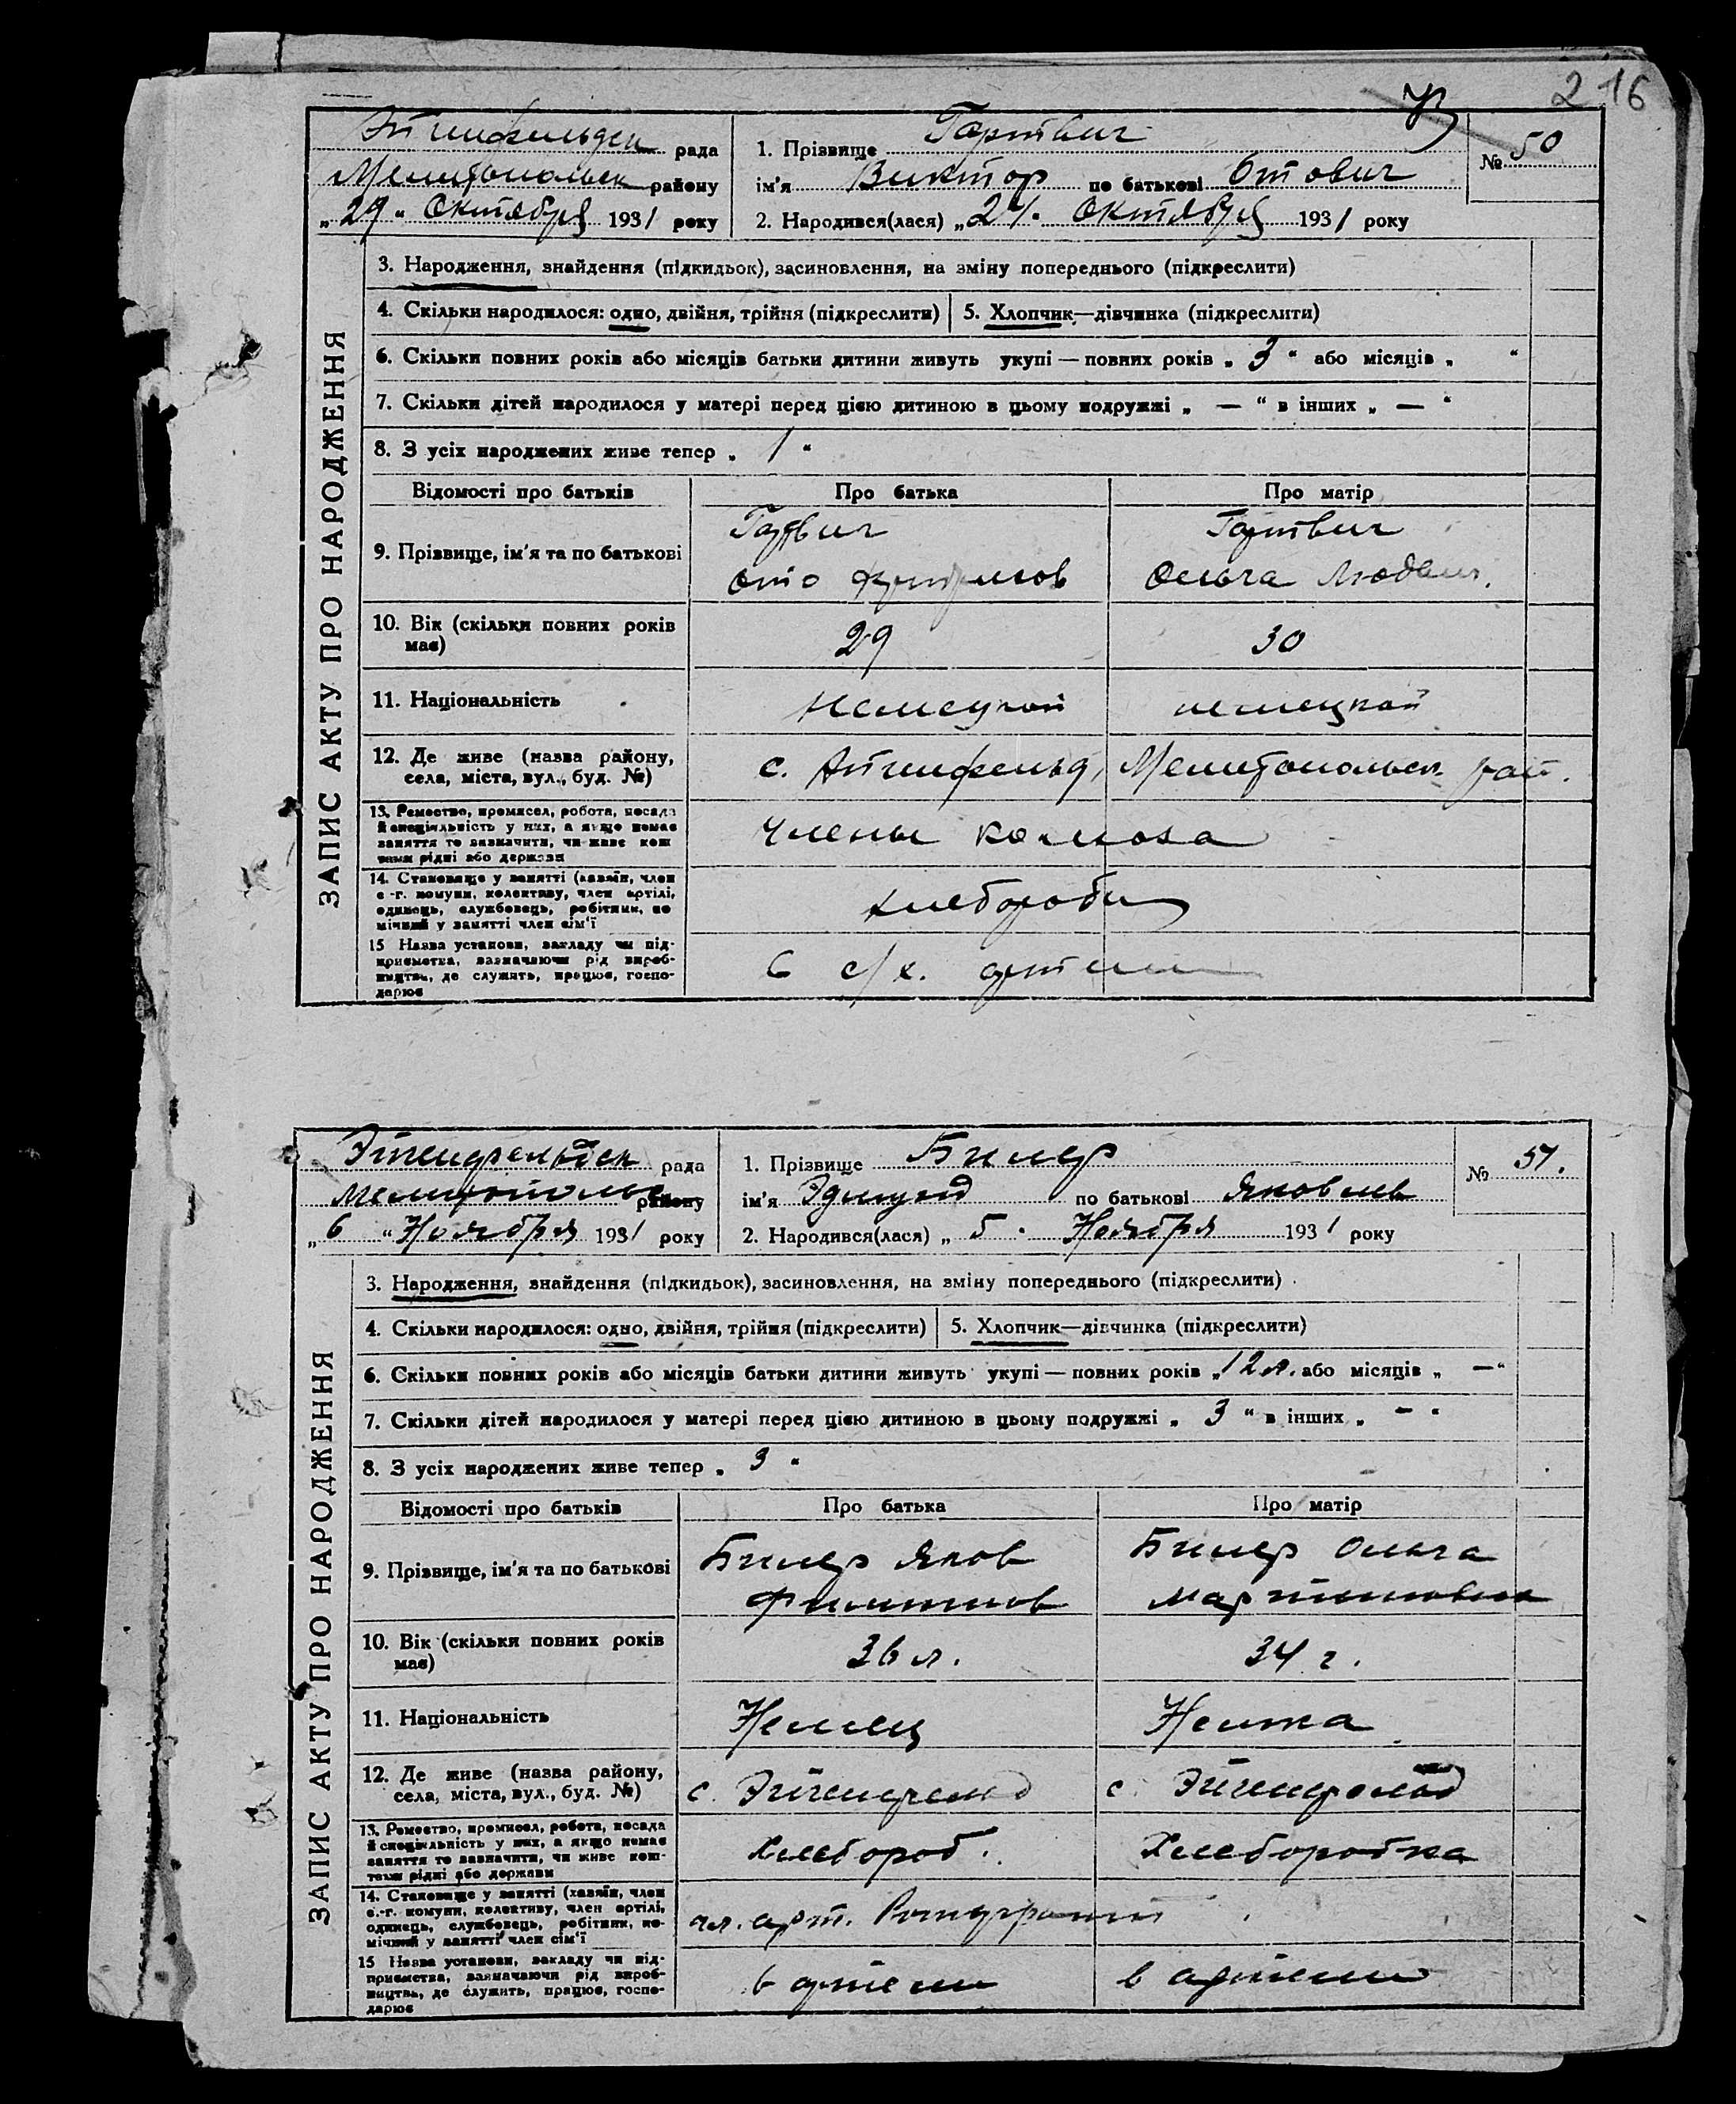 216
рада
Мелитопольск району
„29“ Октября 1931 року
1. Прізвище Гартвиг
ім'я Виктор по батькові Отович
2. Народився(лася) „ Октября 1931 року
№ 50
ЗАПИС АКТУ ПРО НАРОДЖЕННЯ
3. Народження, знайдення (підкидьок), засиновлення, на зміну попереднього (підкреслити)
4. Скільки народилося: одно, двійня, трійня (підкреслити)
5. Хлопчик—дівчинка (підкреслити)
6. Скільки повних років або місяців батьки дитини живуть укупі — повних років „3“ або місяців „ “
7. Скільки дітей народилося у матері перед цією дитиною в цьому подружжі „—“ в інших „—“
8. З усіх народжених живе тепер „1“
Відомості про батьків
Про батька
Про матір
9. Прізвище, ім'я та по батькові
Гартвиг
Ото
Гартвиг
Ольга
10. Вік (скільки повних років
має)
29
30
11. Національність
немецкой
немецкой
12. Де живе (назва району,
села, міста, вул., буд. №)
с. Мелитопольск рай.
13. Ремество, промисел, робота, посада
й спеціяльність у них, а якщо немає
заняття то зазначити, чи живе кош-
тами рідні або держави
Члены колхоза
14. Становище у занятті (хазяїн, член
с.-г. комуни, колективу, член артілі,
одинець, службовець, робітник, по-
мічний у занятті член сім'ї
хлеборобы
15 Назва установи, закладу чи під-
приємства, зазначаючи рід вироб-
ництва, де служить, працює, госпо-
дарює
в с/х. артели
рада
району
„6“ Ноября 1931 року
1. Прізвище Билер
ім'я Эдмунд по батькові Яковлев
2. Народився(лася) „5“ Ноября 1931 року
№ 51.
ЗАПИС АКТУ ПРО НАРОДЖЕННЯ
3. Народження, знайдення (підкидьок), засиновлення, на зміну попереднього (підкреслити)
4. Скільки народилося: одно, двійня, трійня (підкреслити)
5. Хлопчик—дівчинка (підкреслити)
6. Скільки повних років або місяців батьки дитини живуть укупі — повних років „12 л. або місяців „—“
7. Скільки дітей народилося у матері перед цією дитиною в цьому подружжі „3“ в інших „—“
8. З усіх народжених живе тепер „3“
Відомості про батьків
Про батька
Про матір
9. Прізвище, ім'я та по батькові
Билер Яков
Филиппов
Билер Ольга
Мартиновна
10. Вік (скільки повних років
має)
36 л.
34 г.
11. Національність
Немец
Немка
12. Де живе (назва району,
села, міста, вул., буд. №)
с. Эйгенфельд
с. Эйгенфельд
13. Ремество, промисел, робота, посада
й спеціяльність у них, а якщо немає
заняття то зазначити, чи живе кош-
тами рідні або держави
Хлебороб.
Хлеборобка
14. Становище у занятті (хазяїн, член
с.-г. комуни, колективу, член артілі,
одинець, службовець, робітник, по-
мічний у занятті член сім'ї
чл. арт.
15 Назва установи, закладу чи під-
приємства, зазначаючи рід вироб-
ництва, де служить, працює, госпо-
дарює
в артели
в артели